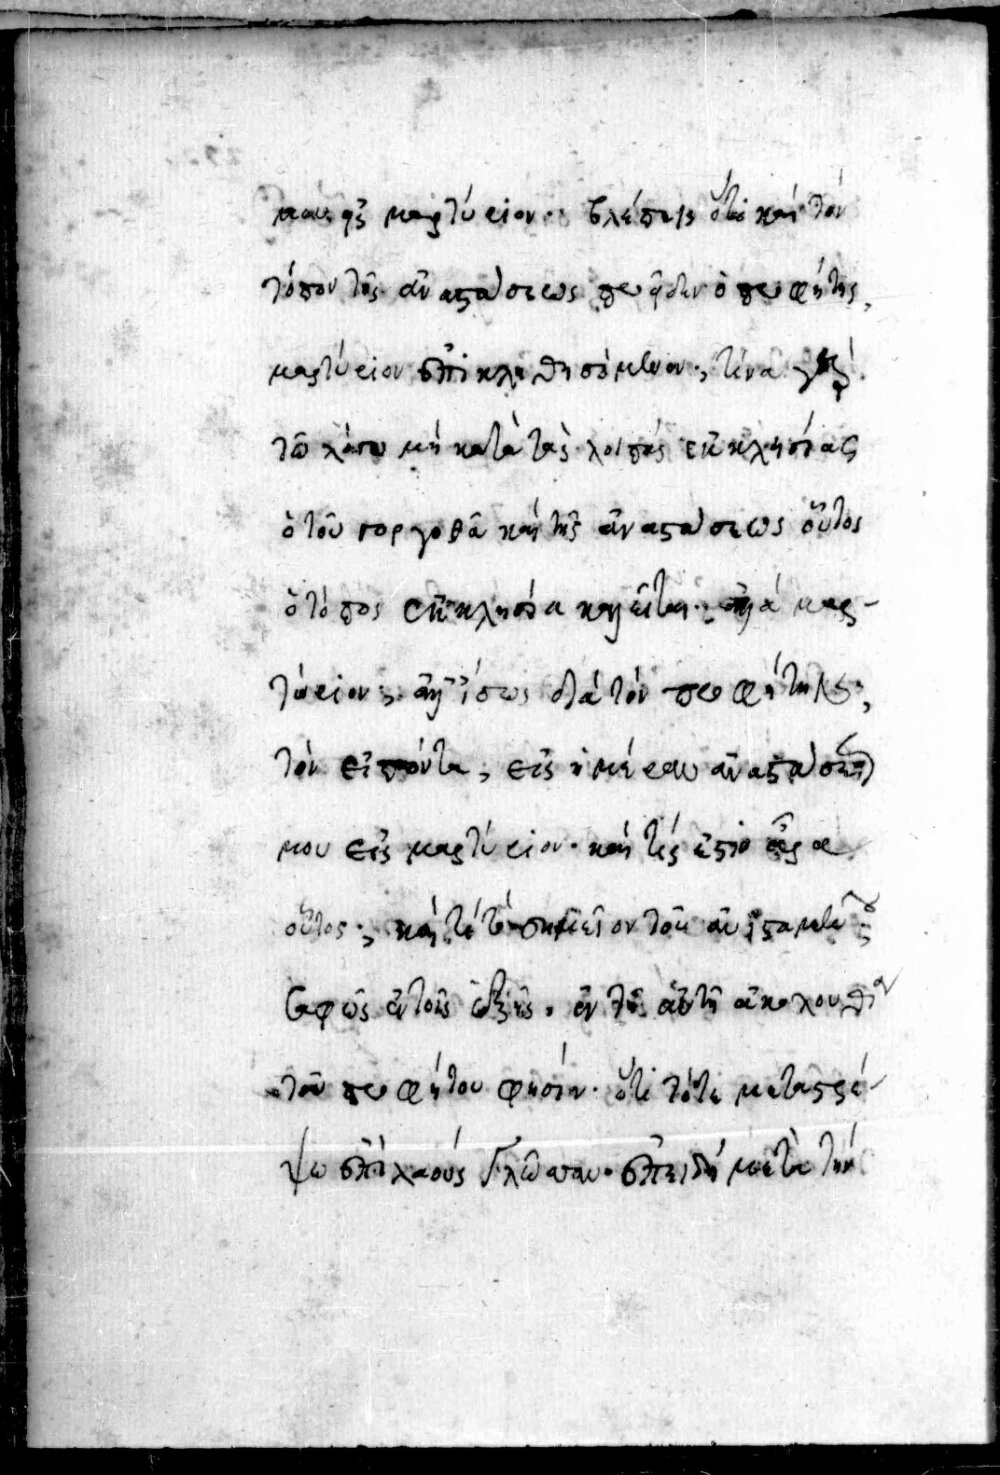 μου εἰς μαρτύριον· βλέπεις ὅτι καὶ τὸν
τόπον τῆς ἀναστάσεως προεῖδεν ὁ προφήτης,
μαρτύριον ἐπικληθησόμενον; τίνι γὰρ
τῷ λόγῳ μὴ κατὰ τὰς λοιπὰς ἐκκλησίας
ὁ τοῦ γοργοθᾶ καὶ τῆς ἀναστάσεως οὗτος
ὁ τόπος ἐκκλησία καλεῖται· ἀλλὰ μαρ-
τύριον; ἀλλ' ἴσως διὰ τὸν προφήτην,
τὸν εἰπόντα, εἰς ἡμέραν ἀναστάσεως
μου εἰς μαρτύριον· καὶ τίς ἐστιν ἆρα
οὗτος; καὶ τί τὸ σημεῖον τοῦ ἀνισταμένου;
σαφῶς ἐν τοῖς ἑξῆς, ἐν τῇ αὐτῇ ἀκολουθίᾳ
τοῦ προφήτου φησίν· ὅτι τότε μεταστρέ-
ψω ἐπὶ λαοὺς γλῶσσαν· ἐπειδὴ μετὰ τὴν